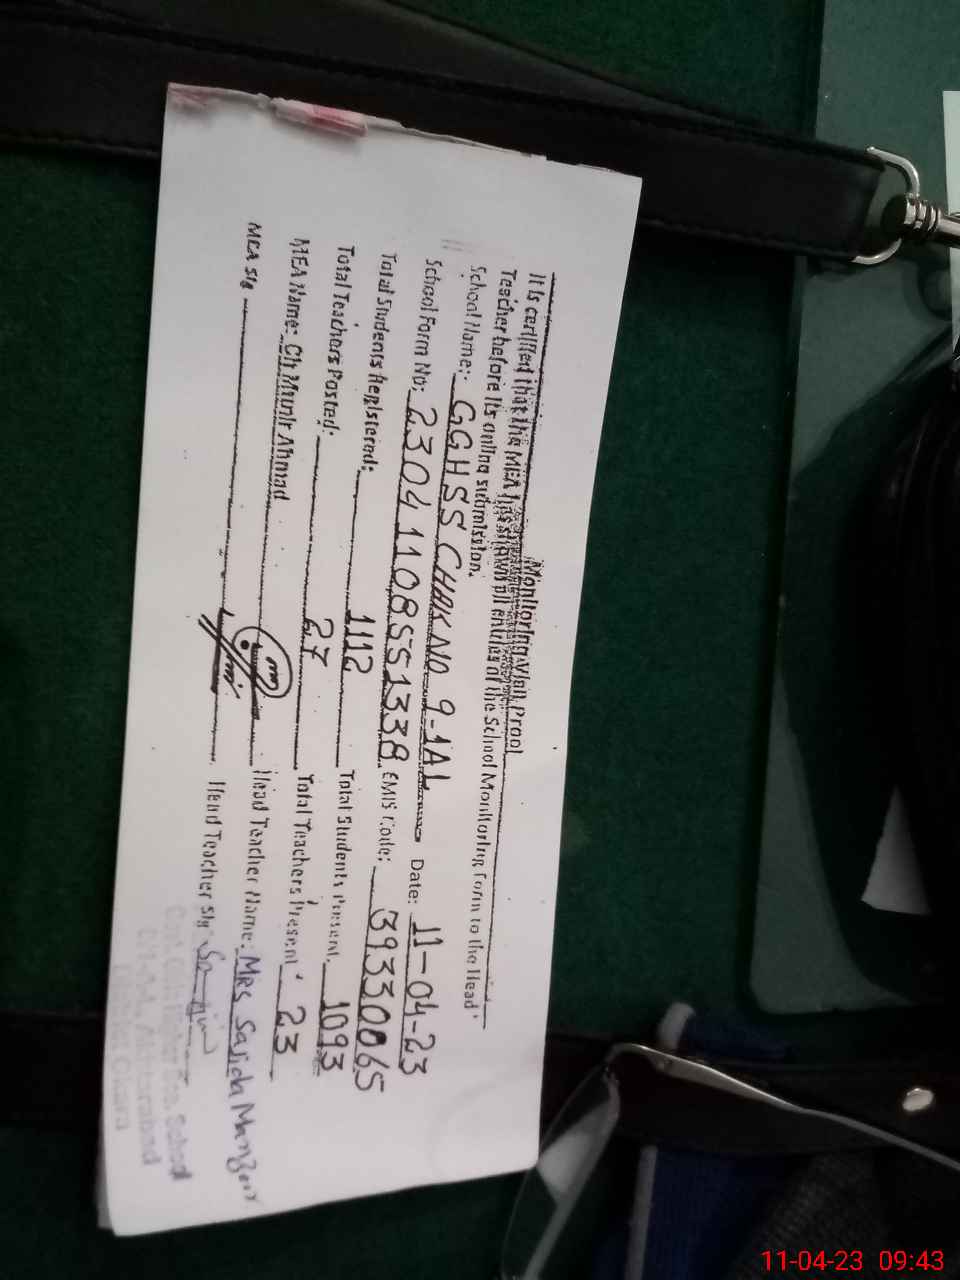 Monitoring Visit Proof
It is certified that the MEA has shown all entries of the School Monitoring Form to the Head
Teacher before its online submission.
School Name:- GGHSS CHAK NO 9-1AL Date: 11-04-23
School Form No: 23041108551338 EMIS Code: 39330065
Total Students Registered: 1112 Total Students Present. 1093
Total Teachers Posted: 27 Total Teachers Present 23
MEA Name: Ch Munir Ahmad Head Teacher Name: MRS Sajida Manzoor
MEA Sig Head Teacher Sig
Sec. School
District Okara
11-04-23 09:43